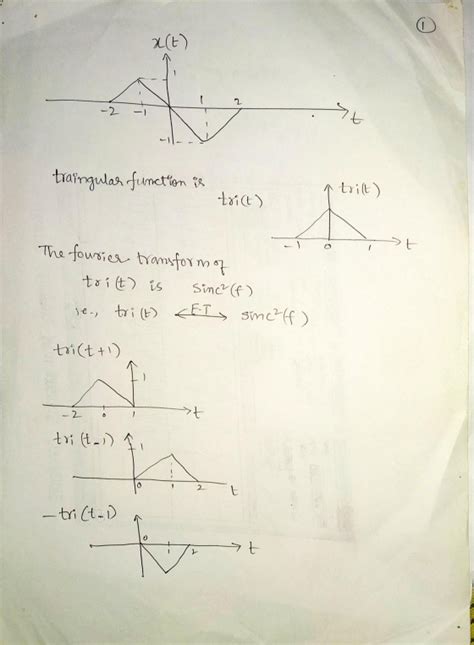 1
x(t)
1
-2 -1 1 2
t
-1
traingular function is
tri(t)
tri(t)
-1 0 1 t
The fourier transform of
tri(t) is sinc²(f)
i.e., tri(t) <-F.T-> sinc²(f)
tri(t+1)
1
-2 0 1 t
tri(t-1)
1
0 1 2 t
-tri(t-1)
0
1 2 t